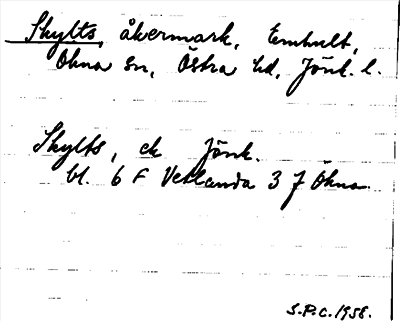 Skylts, åkermark, Emhult,
Ökna sn, Östra hd, Jönk. l.
Skylts, ek Jönk.
bl. 6 F Vetlanda 3 J Ökna.
S.P.C. 1958.